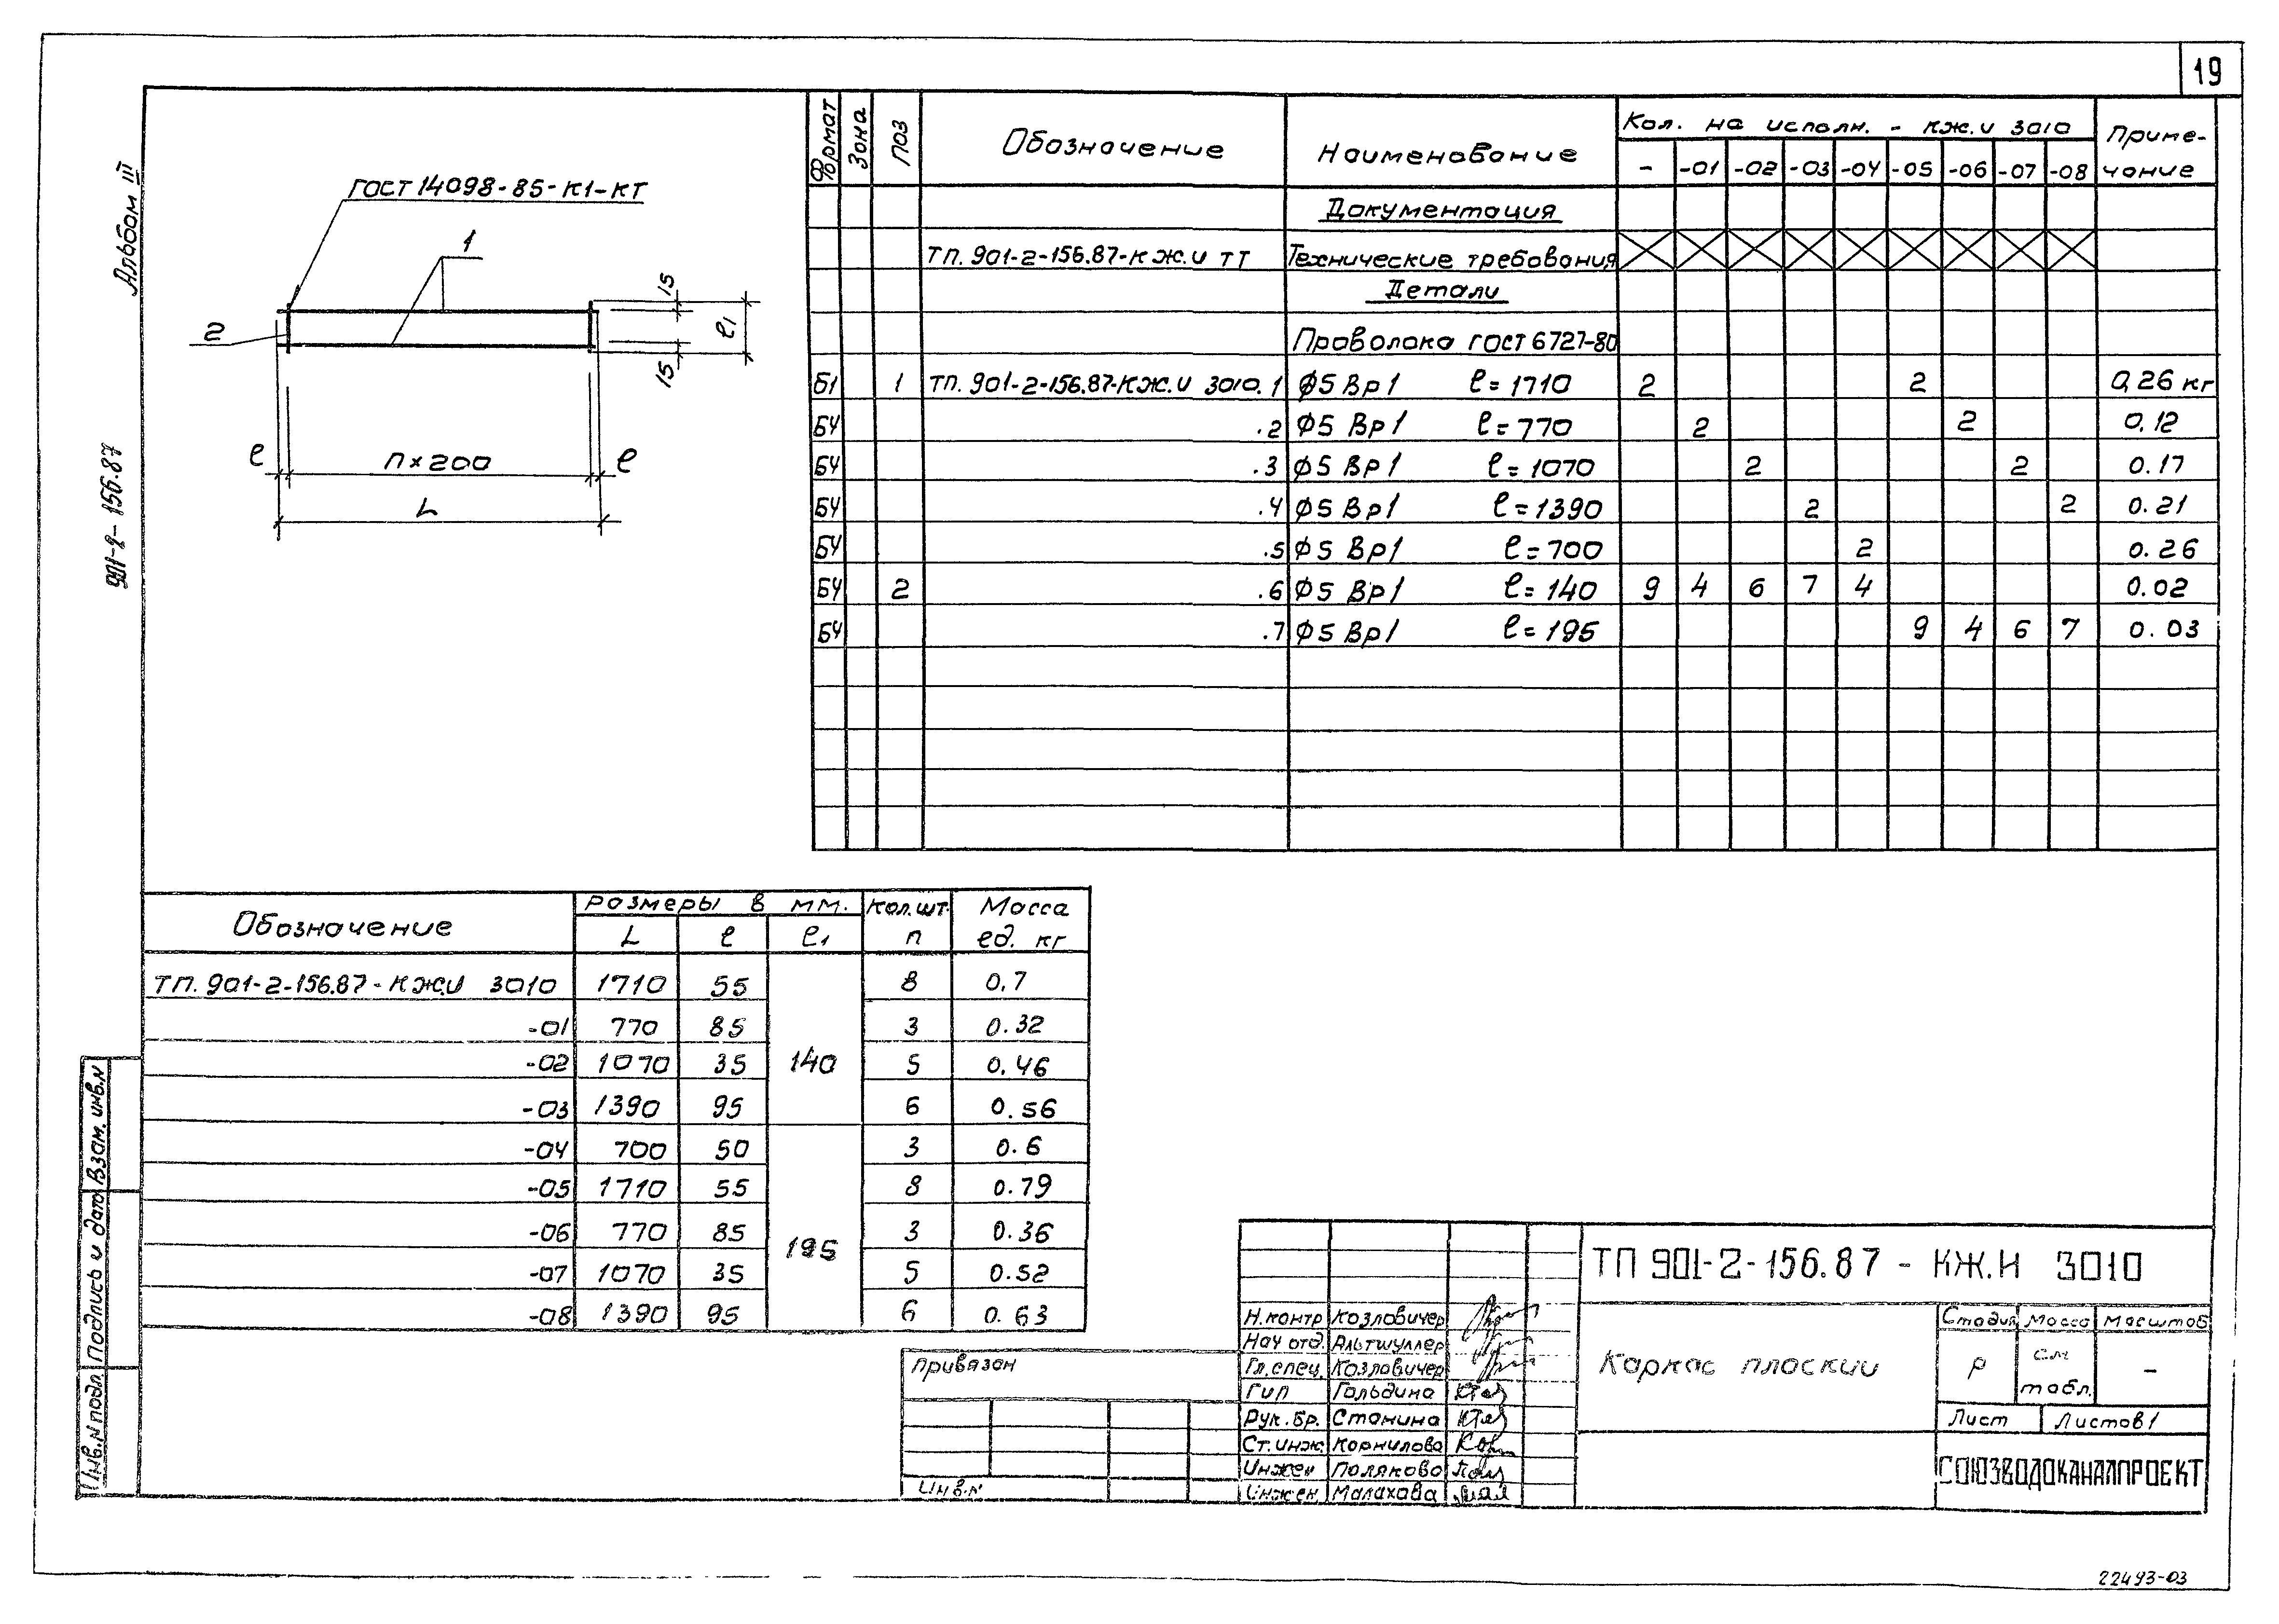 19
Альбом III
901-2-156.87
ГОСТ 14098-85-К1-КТ
1
2
15
15
ℓ1
ℓ
n×200
ℓ
L
Формат Зона Поз Обозначение Наименование Кол. на исполн. - КЖ.И 3010 Примечание
- -01 -02 -03 -04 -05 -06 -07 -08
Документация
ТП. 901-2-156.87-КЖ.И ТТ Технические требования
Детали
Проволока ГОСТ 6727-80
Б1 1 ТП. 901-2-156.87-КЖ.И 3010.1 Ф5 Вр1 ℓ=1710 2 2 0,26 кг
БЧ .2 Ф5 Вр1 ℓ=770 2 2 0.12
БЧ .3 Ф5 Вр1 ℓ=1070 2 2 0.17
БЧ .4 Ф5 Вр1 ℓ=1390 2 2 0.21
БЧ .5 Ф5 Вр1 ℓ=700 2 0.26
БЧ 2 .6 Ф5 Вр1 ℓ=140 9 4 6 7 4 0.02
БЧ .7 Ф5 Вр1 ℓ=195 9 4 6 7 0.03
Обозначение Размеры в мм. Кол.шт. Масса
L ℓ ℓ1 n ед. кг
ТП. 901-2-156.87-КЖ.И 3010 1710 55 8 0.7
-01 770 85 3 0.32
-02 1070 35 140 5 0.46
-03 1390 95 6 0.56
-04 700 50 3 0.6
-05 1710 55 8 0.79
-06 770 85 3 0.36
195
-07 1070 35 5 0.52
-08 1390 95 6 0.63
Взам. инв.N
Подпись и дата
Инв.N подл.
Привязан
Инв.N
Н.контр Козловичер
Нач отд. Альтшуллер
Гл.спец. Козловичер
Гип Гольдина
Рук.бр. Станина
Ст.инж. Корнилова
Инжен Полякова
Инжен. Малахова
ТП 901-2-156.87 - КЖ.И 3010
Каркас плоский
Стадия Масса Масштаб
Р см табл. -
Лист Листов 1
СОЮЗВОДОКАНАЛПРОЕКТ
22493-03